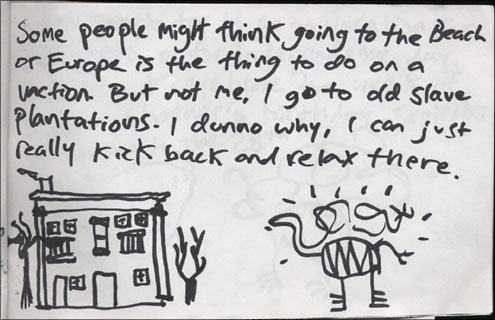 Some people might think going to the Beach
or Europe is the thing to do on a
vaction. But not me, I go to old slave
plantations. I dunno why, I can just
really kick back and relax there.